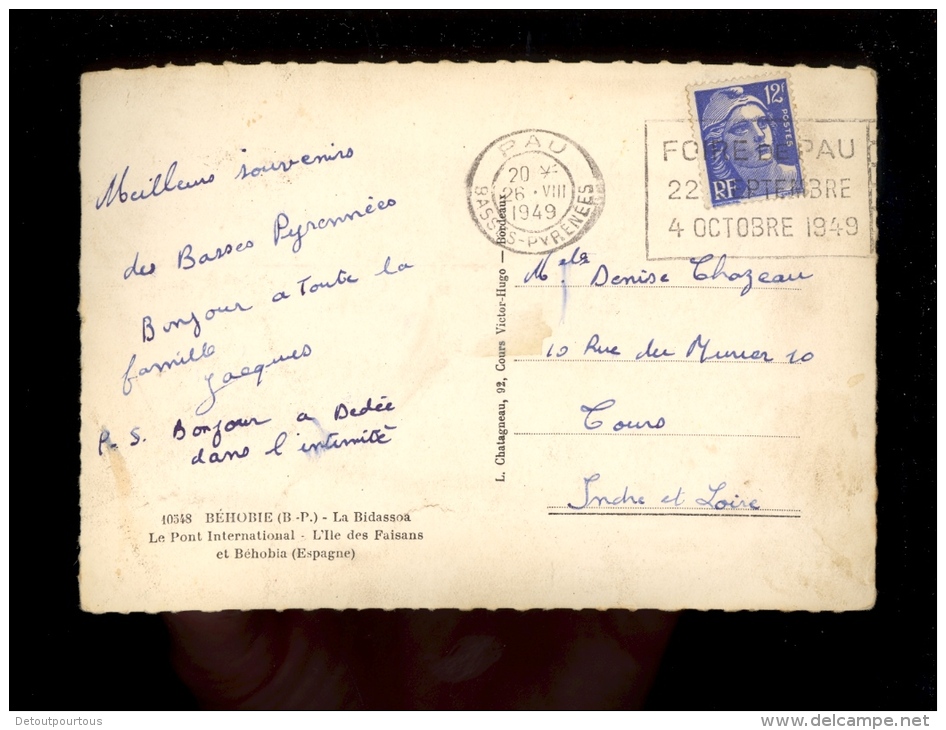 Meilleurs souvenirs
des Basses Pyrennées
Bonjour a Toute la
famille
Jacques
P. S. Bonjour a Dedée
dans l'intimité
10548 BÉHOBIE (B.-P.) - La Bidassoa
Le Pont International - L'Ile des Faisans
et Béhobia (Espagne)
L. Chatagneau, 92, Cours Victor-Hugo — Bordeaux
PAU
20 H
26 · VIII
1949
BASSES-PYRÉNÉES
12F
POSTES
RF
FOIRE DE PAU
22 SEPTEMBRE
4 OCTOBRE 1949
Denise Chazeau
10 Rue du Murier 10
Tours
Indre et Loire
Detoutpourtous
delcampe.net